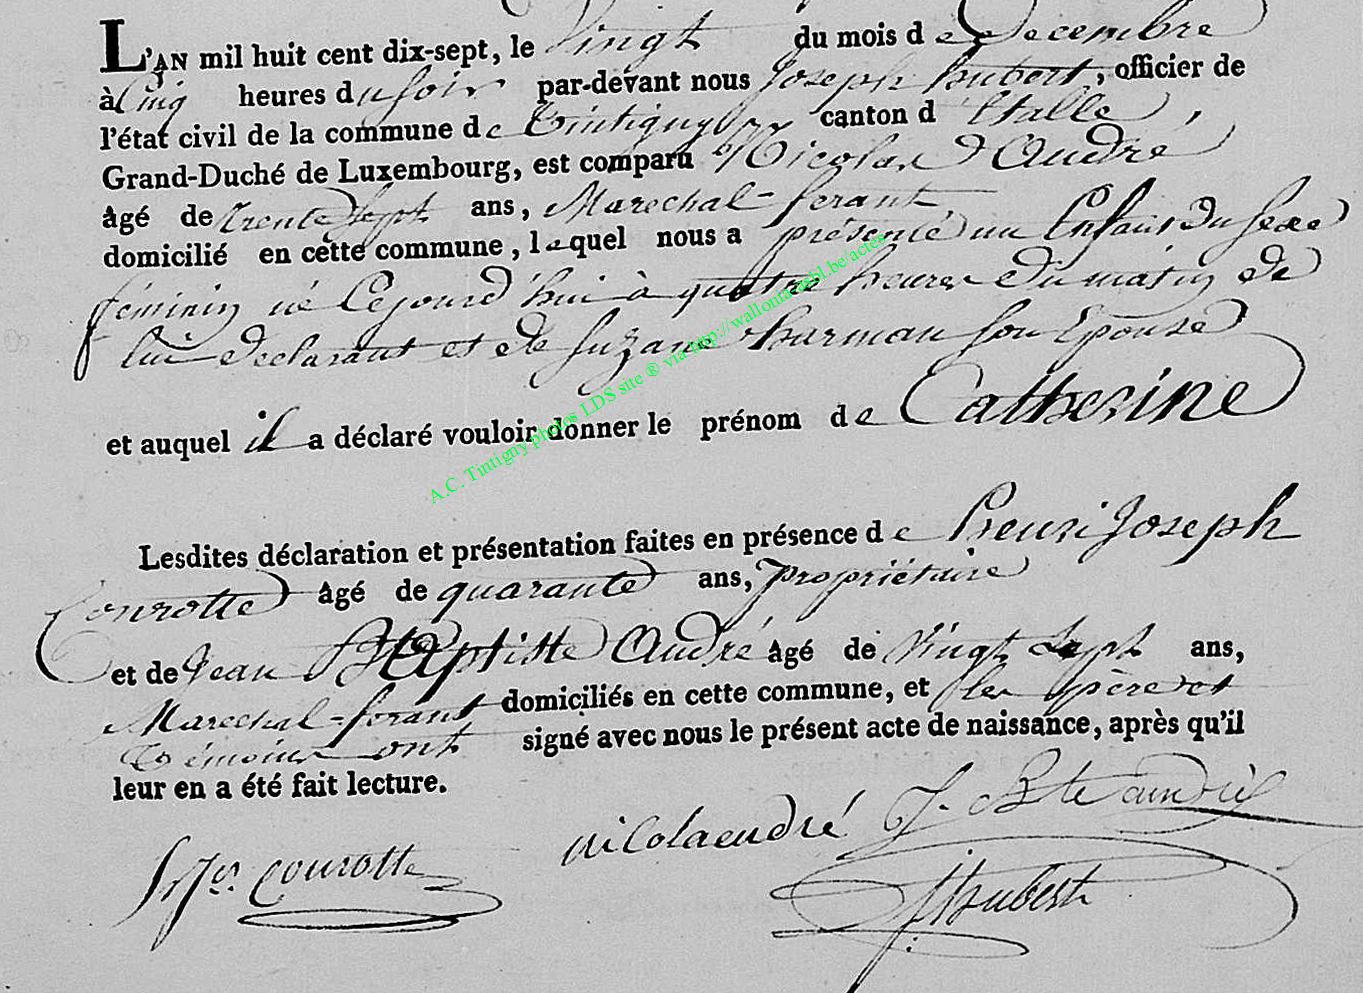 L'AN mil huit cent dix-sept, le Vingt du mois de Decembre
à Cinq heures du soir par-devant nous Joseph hubert, officier de
l'état civil de la commune de Tintigny canton d'Etalle,
Grand-Duché de Luxembourg, est comparu Nicolas André
âgé de trente sept ans, Marechal-ferant
domicilié en cette commune, lequel nous a présenté un Enfant du sexe
féminin né Cejourd'hui à quatre heures du matin de
lui declarant et de Suzane harman son Epouse
et auquel il a déclaré vouloir donner le prénom de Catherine
Lesdites déclaration et présentation faites en présence de henri Joseph
Courotte âgé de quarante ans, propriétaire
et de Jean Baptiste André âgé de Vingt Sept ans,
Marechal-ferant domiciliés en cette commune, et les père et
Témoins ont signé avec nous le présent acte de naissance, après qu'il
leur en a été fait lecture.
nicola endré J. Bte andré
courotte
JHubert
A.C. Tintigny photos LDS site ® via http://wallonia-asbl.be/actes